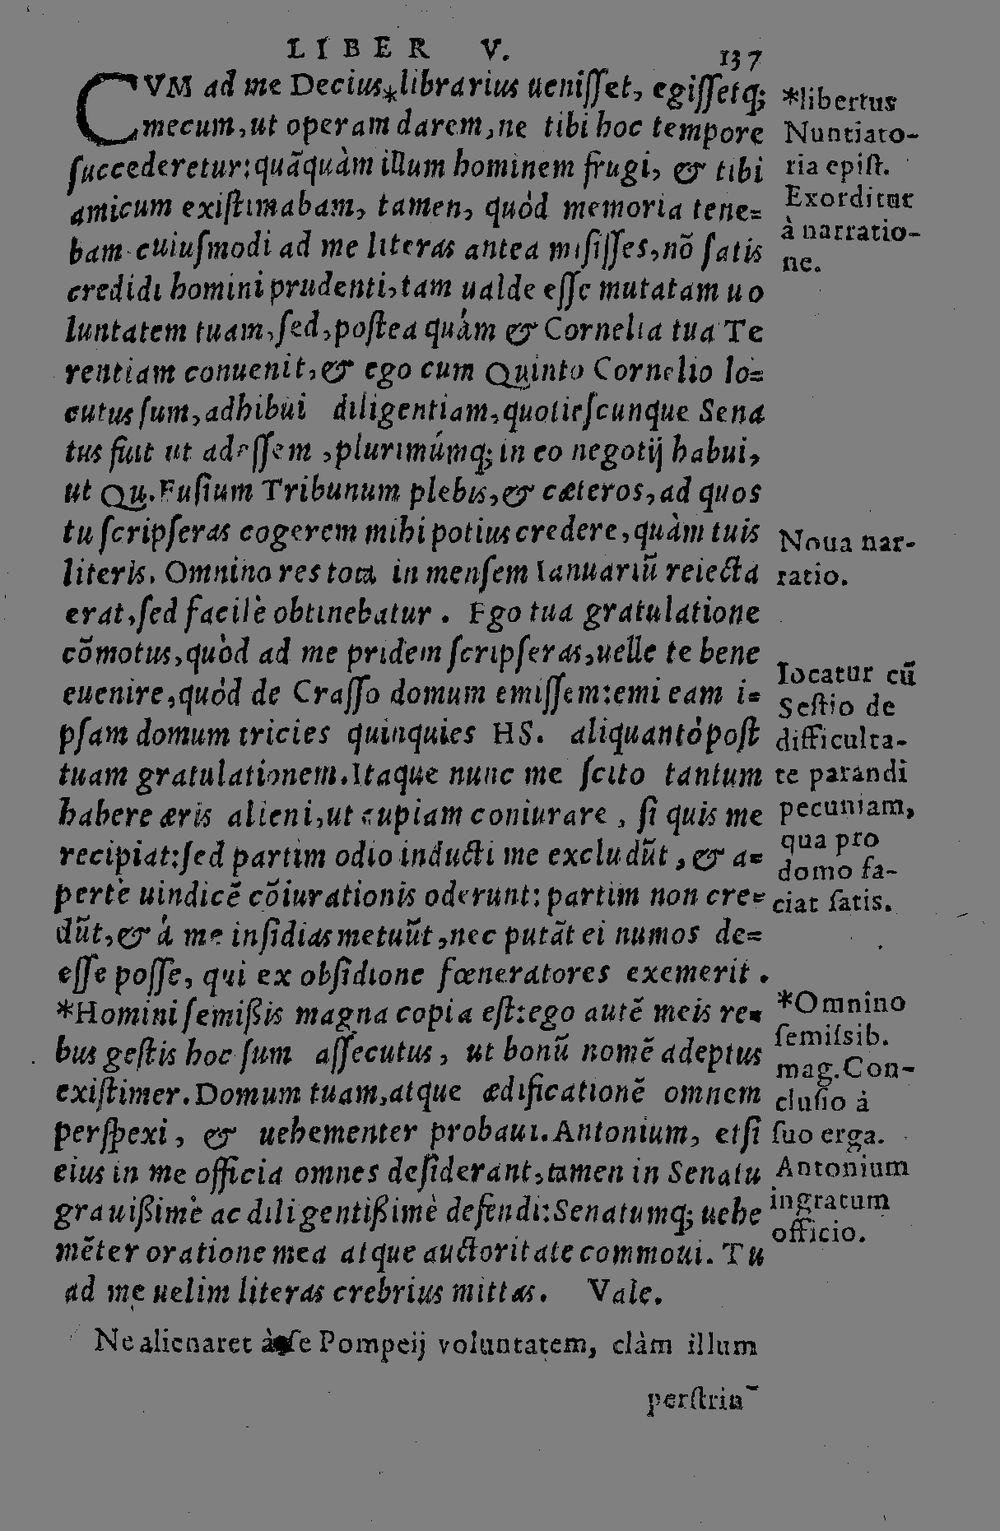 LIBER V. 137
CVM ad me Decius*librarius uenisset, egissetq;
mecum, ut operam darem, ne tibi hoc tempore
succederetur: quãquàm illum hominem frugi, & tibi
amicum existimabam, tamen, quòd memoria tene=
bam cuiusmodi ad me literas antea misisses, nõ satis
credidi homini prudenti, tam ualde esse mutatam uo
luntatem tuam, sed, postea quàm & Cornelia tua Te
rentiam conuenit, & ego cum Quinto Cornelio lo=
cutus sum, adhibui diligentiam, quotiescunque Sena
tus fuit ut adessem, plurimúmq; in eo negotij habui,
ut Qu. Fusium Tribunum plebis, & cæteros, ad quos
tu scripseras cogerem mihi potius credere, quàm tuis
literis. Omnino res tota in mensem Ianuariũ reiecta
erat, sed facilè obtinebatur. Ego tua gratulatione
cõmotus, quòd ad me pridem scripseras, uelle te bene
euenire, quòd de Crasso domum emissem: emi eam i=
psam domum tricies quinquies HS. aliquantò post
tuam gratulationem. Itaque nunc me scito tantum
habere æris alieni, ut cupiam coniurare, si quis me
recipiat: sed partim odio inducti me excludũt, & a=
pertè uindicẽ cõiurationis oderunt: partim non cre=
dũt, & à me insidias metuũt, nec putãt ei numos de=
esse posse, qui ex obsidione fœneratores exemerit.
*Homini semißis magna copia est: ego autẽ meis re=
bus gestis hoc sum assecutus, ut bonũ nomẽ adeptus
existimer. Domum tuam, atque ædificationẽ omnem
perspexi, & uehementer probaui. Antonium, etsi
eius in me officia omnes desiderant, tamen in Senatu
grauißimè ac diligentißimè defendi: Senatumq; uehe
mẽter oratione mea atque auctoritate commoui. Tu
ad me uelim literas crebrius mittas. Vale.
Ne alienaret à se Pompeij voluntatem, clàm illum
perstrin-
*libertus
Nuntiato-
ria epist.
Exorditur
à narratio-
ne.
Noua nar-
ratio.
Iocatur cũ
Sestio de
difficulta-
te parandi
pecuniam,
qua pro
domo fa-
ciat satis.
*Omnino
semissib.
mag. Con-
clusio à
suo erga.
Antonium
ingratum
officio.